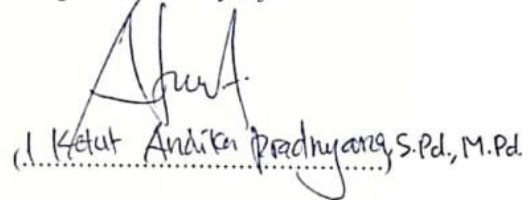 (I Ketut Andika Pradnyana, S.Pd., M.Pd